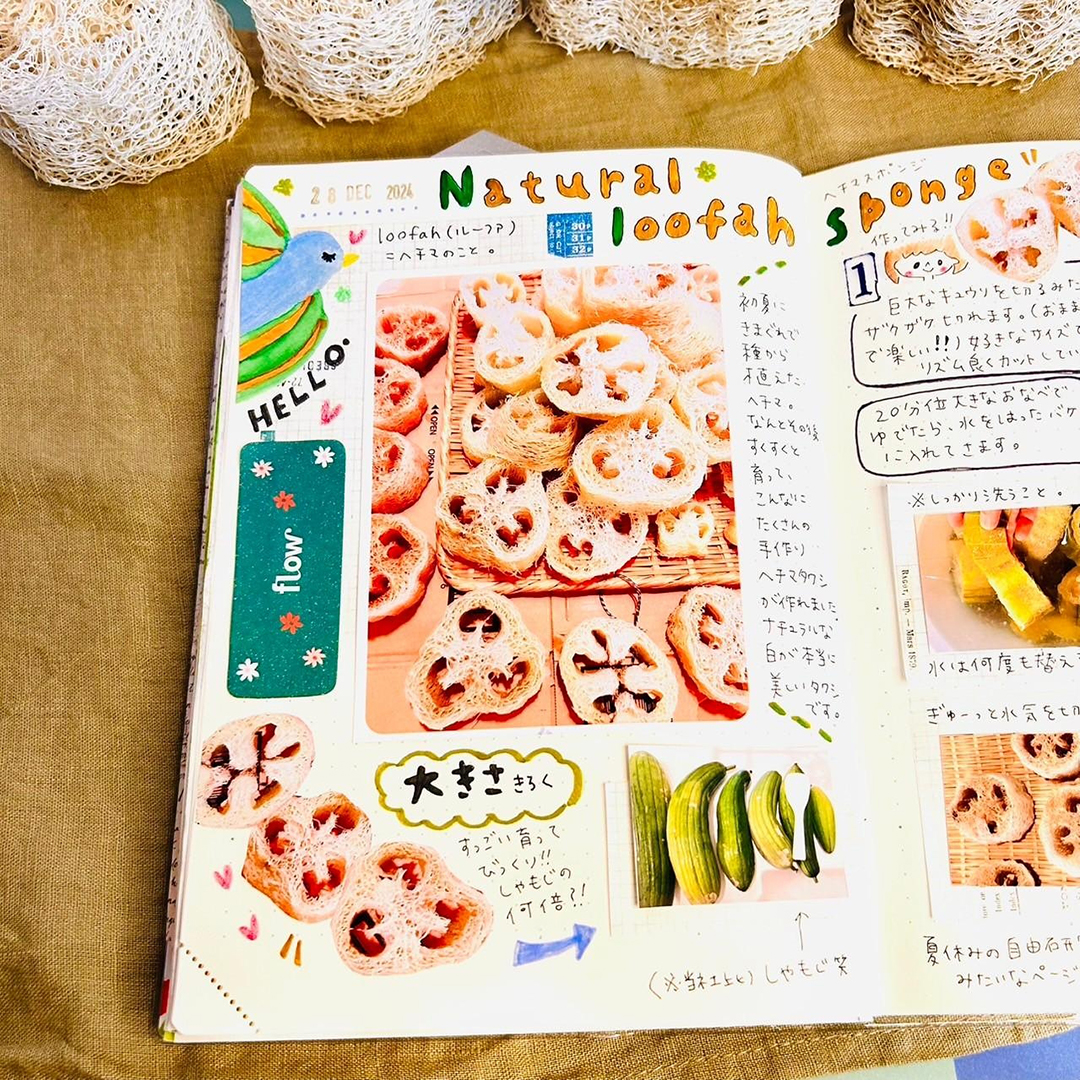 28 DEC 2024
Natural
loofah
Sponge
ヘチマスポンジ
loofah(ルーファ)
=ヘチマのこと。
30
31
32
HELLO.
flow
OPEN
OPEN
初夏に
きまぐれで
種から
植えた
ヘチマ。
なんとその後
すくすくと
育って、
こんなに
たくさんの
手作り
ヘチマタワシ
が作れました
ナチュラルな
白が本当に
美しいタワシ
です。
大きさきろく
すっごい育って
びっくり!!
しゃもじの
何倍?!
しゃもじ笑
作ってみる!!
1
巨大なキュウリを切るみた
ザクザク切れます。(おまま
で楽しい!!)好きなサイズで
リズム良くカットしてい
20分位大きなおなべで
ゆでたら、水をはったバケ
に入れてさます。
※しっかり洗うこと。
Bagot, imp. — Mars 1879.
水は何度も替え
ぎゅーっと水気を切
夏休みの自由研
みたいなページ